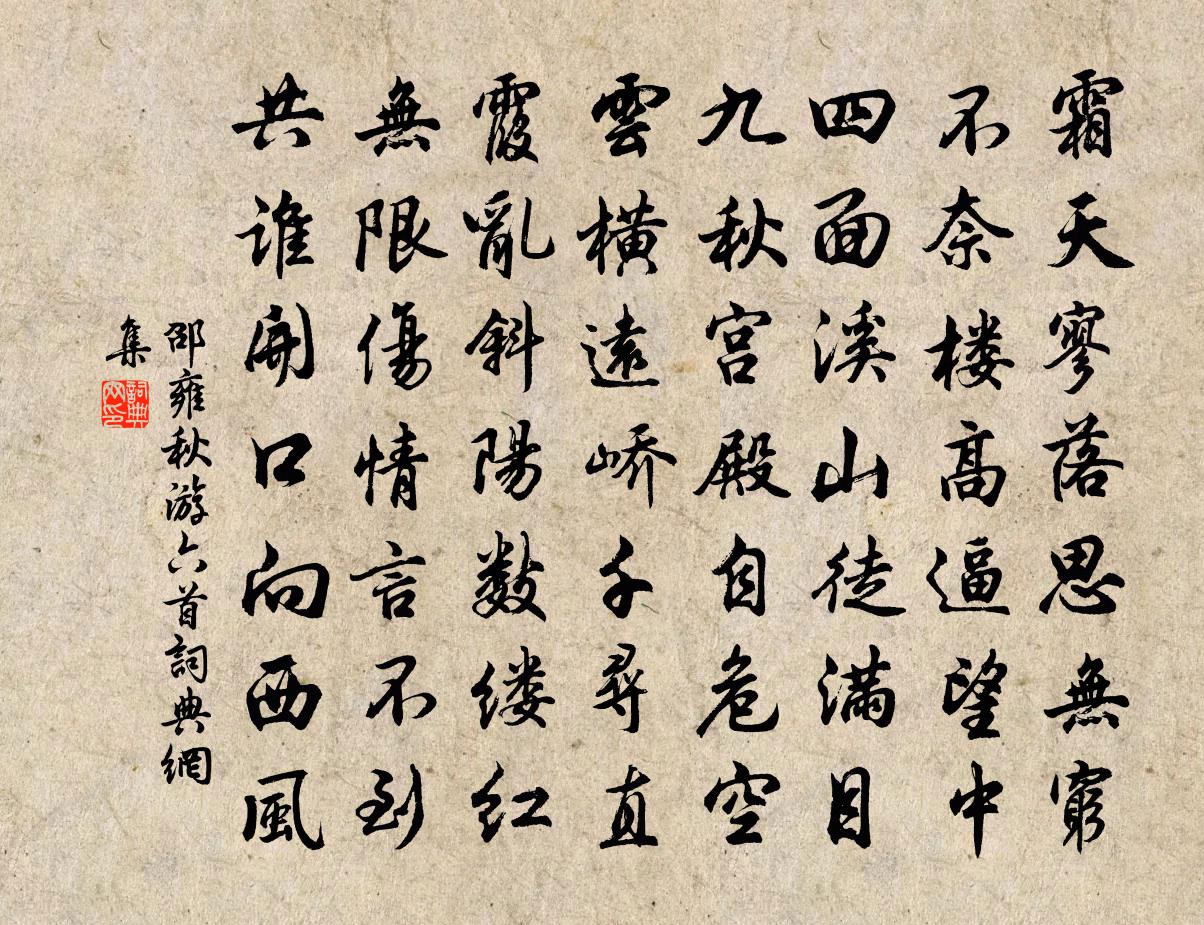 霜天寥落思無窮
不奈楼高逼望中
四面溪山徒满目
九秋宫殿自危空
雲横遠嶠千尋直
霞亂斜陽数缕红
無限傷情言不到
共谁開口向西風
邵雍秋游六首詞典網
集
詞典
网印